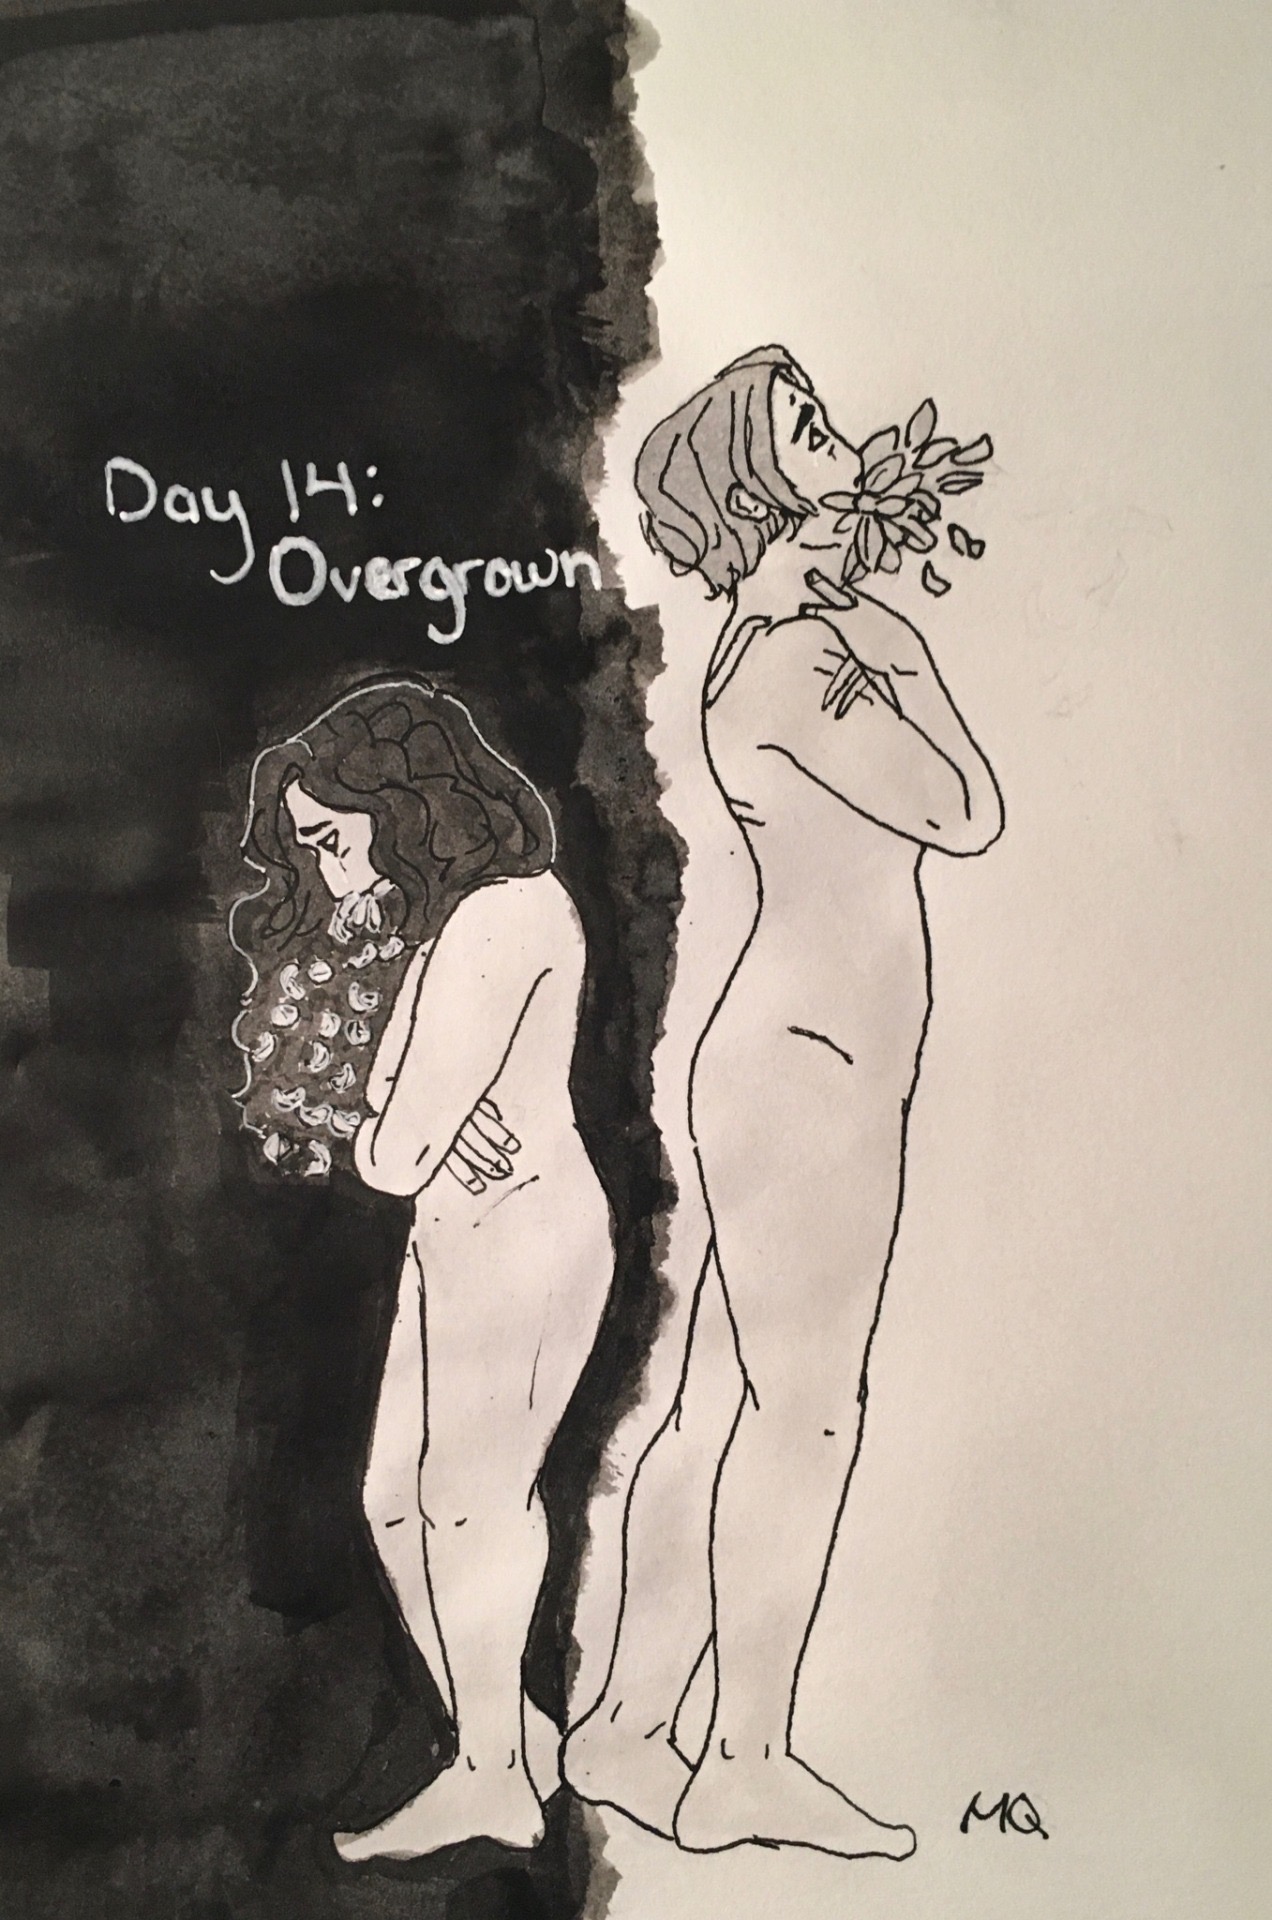 Day 14:
Overgrown
MQ